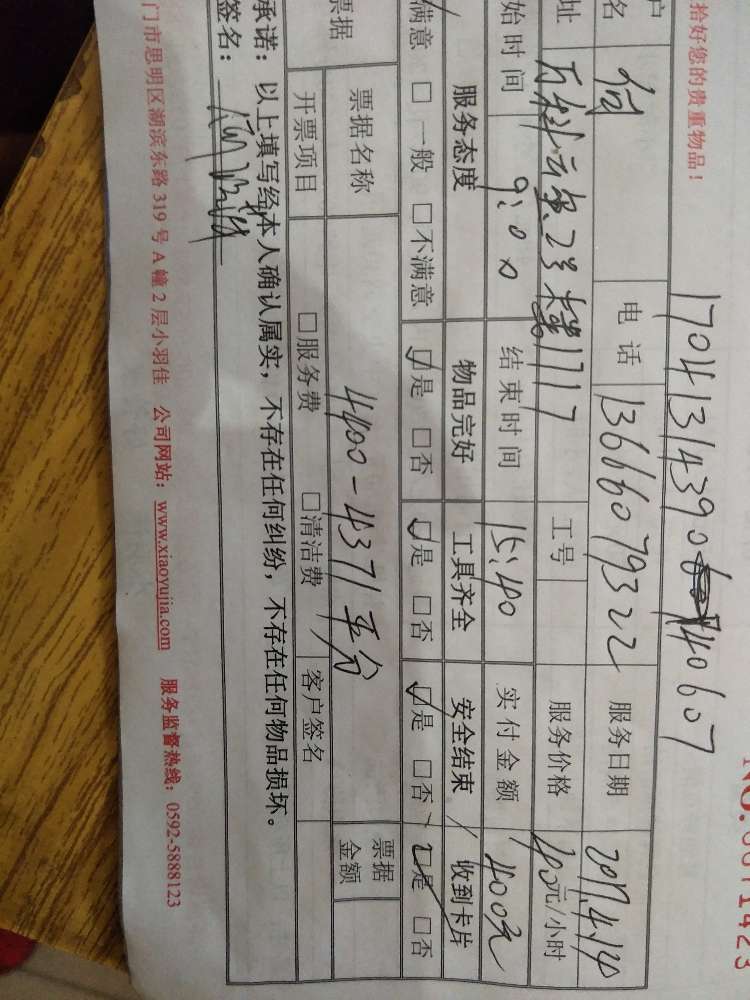 拾好您的贵重物品！
NO.
1423
户
名
何
电话
13666079322
服务日期
2017.4.14
址
万科云玺.2号楼1717
工号
服务价格
40元/小时
始时间
9:00
结束时间
15:40
实付金额
400元
服务态度
物品完好
工具齐全
安全结束
收到卡片
满意 □一般 □不满意
□是 □否
□是 □否
□是 □否
□是 □否
票据
票据名称
4400-4371平分
票据
金额
开票项目
□服务费
□清洁费
客户签名
承诺：以上填写经本人确认属实，不存在任何纠纷，不存在任何物品损坏。
签名：
门市思明区湖滨东路 319 号 A 幢 2 层小羽佳 公司网站：www.xiaoyujia.com 服务监督热线：0592-5888123